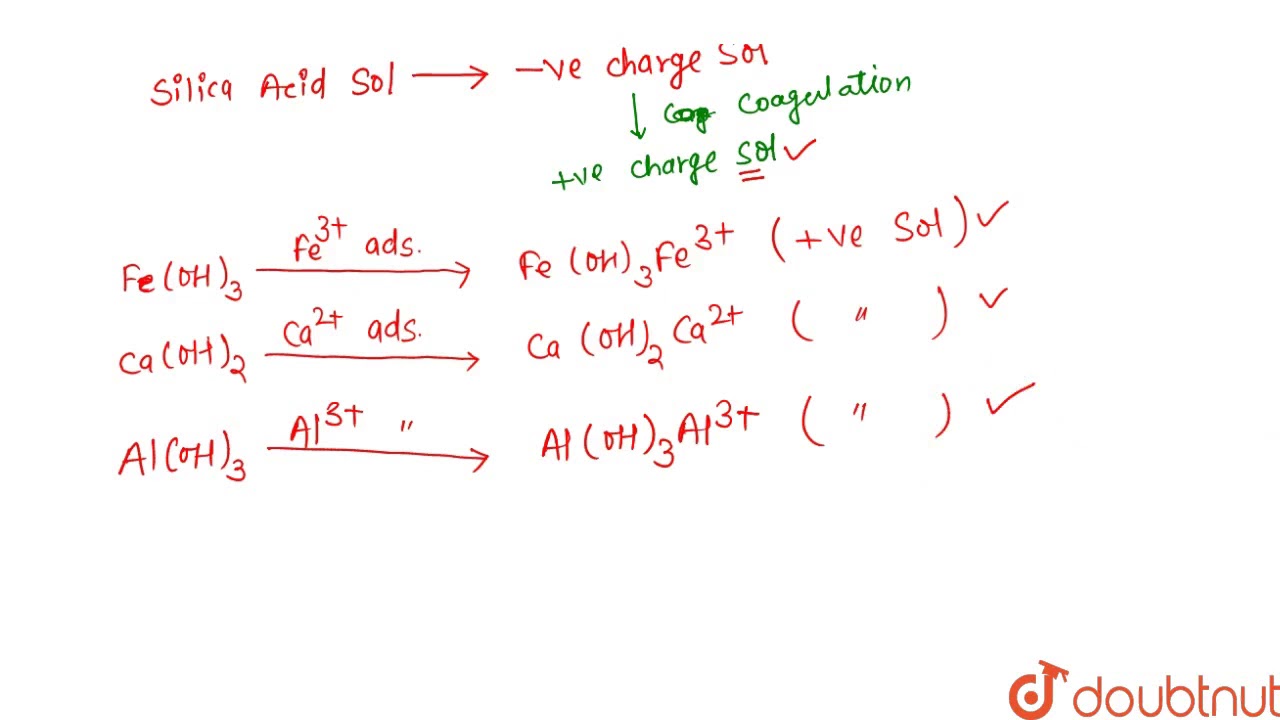 Silica Acid Sol ⟶ -ve charge Sol
↓ Coagulation
+ve charge sol ✓
Fe(OH)₃ ⟶ Fe³⁺ ads. Fe(OH)₃Fe³⁺ (+ve Sol) ✓
Ca(OH)₂ ⟶ Ca²⁺ ads. Ca(OH)₂Ca²⁺ ( " ) ✓
Al(OH)₃ ⟶ Al³⁺ " Al(OH)₃Al³⁺ ( " ) ✓
doubtnut